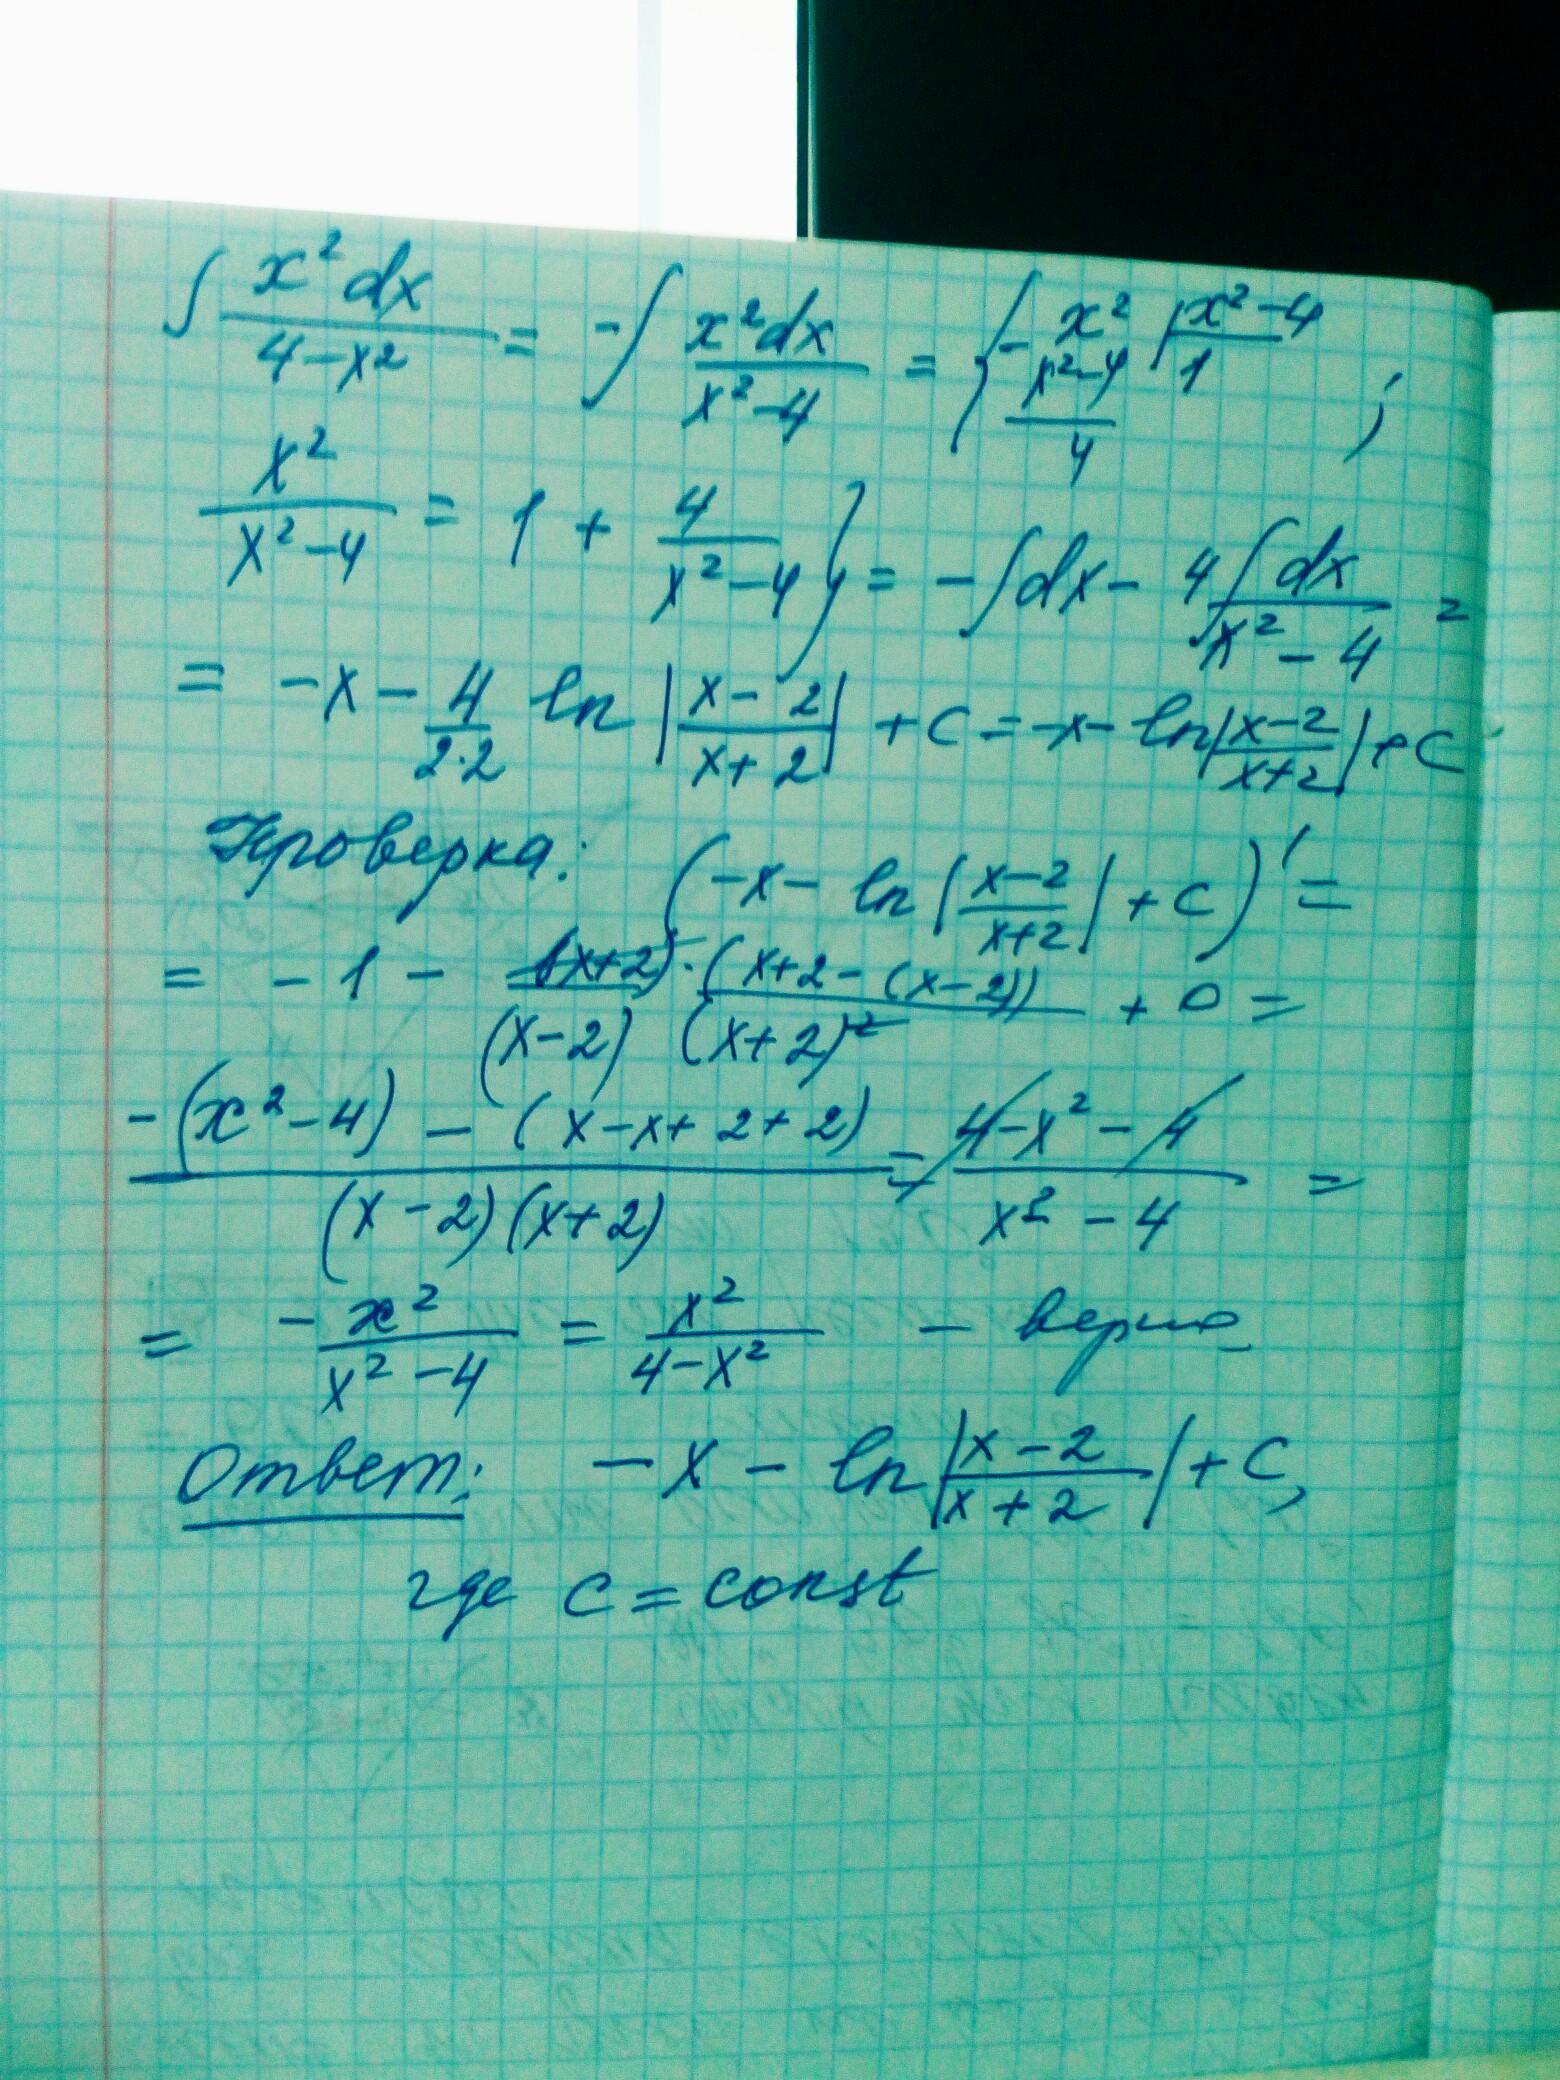 ∫ x² dx / (4 − x²) = −∫ x² dx / (x² − 4) = { − x² | x² − 4
x² − 4 | 1
4 ;
x² / (x² − 4) = 1 + 4 / (x² − 4) } = −∫dx − 4∫ dx / (x² − 4) =
= −x − 4 / (2·2) ln |(x − 2) / (x + 2)| + C = −x − ln|(x − 2) / (x + 2)| + C
Проверка: (−x − ln |(x − 2) / (x + 2)| + C)′ =
= −1 − (x+2) / (x−2) · (x+2 − (x−2)) / (x+2)² + 0 =
(−(x² − 4) − (x − x + 2 + 2)) / ((x − 2)(x + 2)) = (4 − x² − 4) / (x² − 4) =
= − x² / (x² − 4) = x² / (4 − x²) − верно
Ответ: −x − ln |(x − 2) / (x + 2)| + C,
где C = const